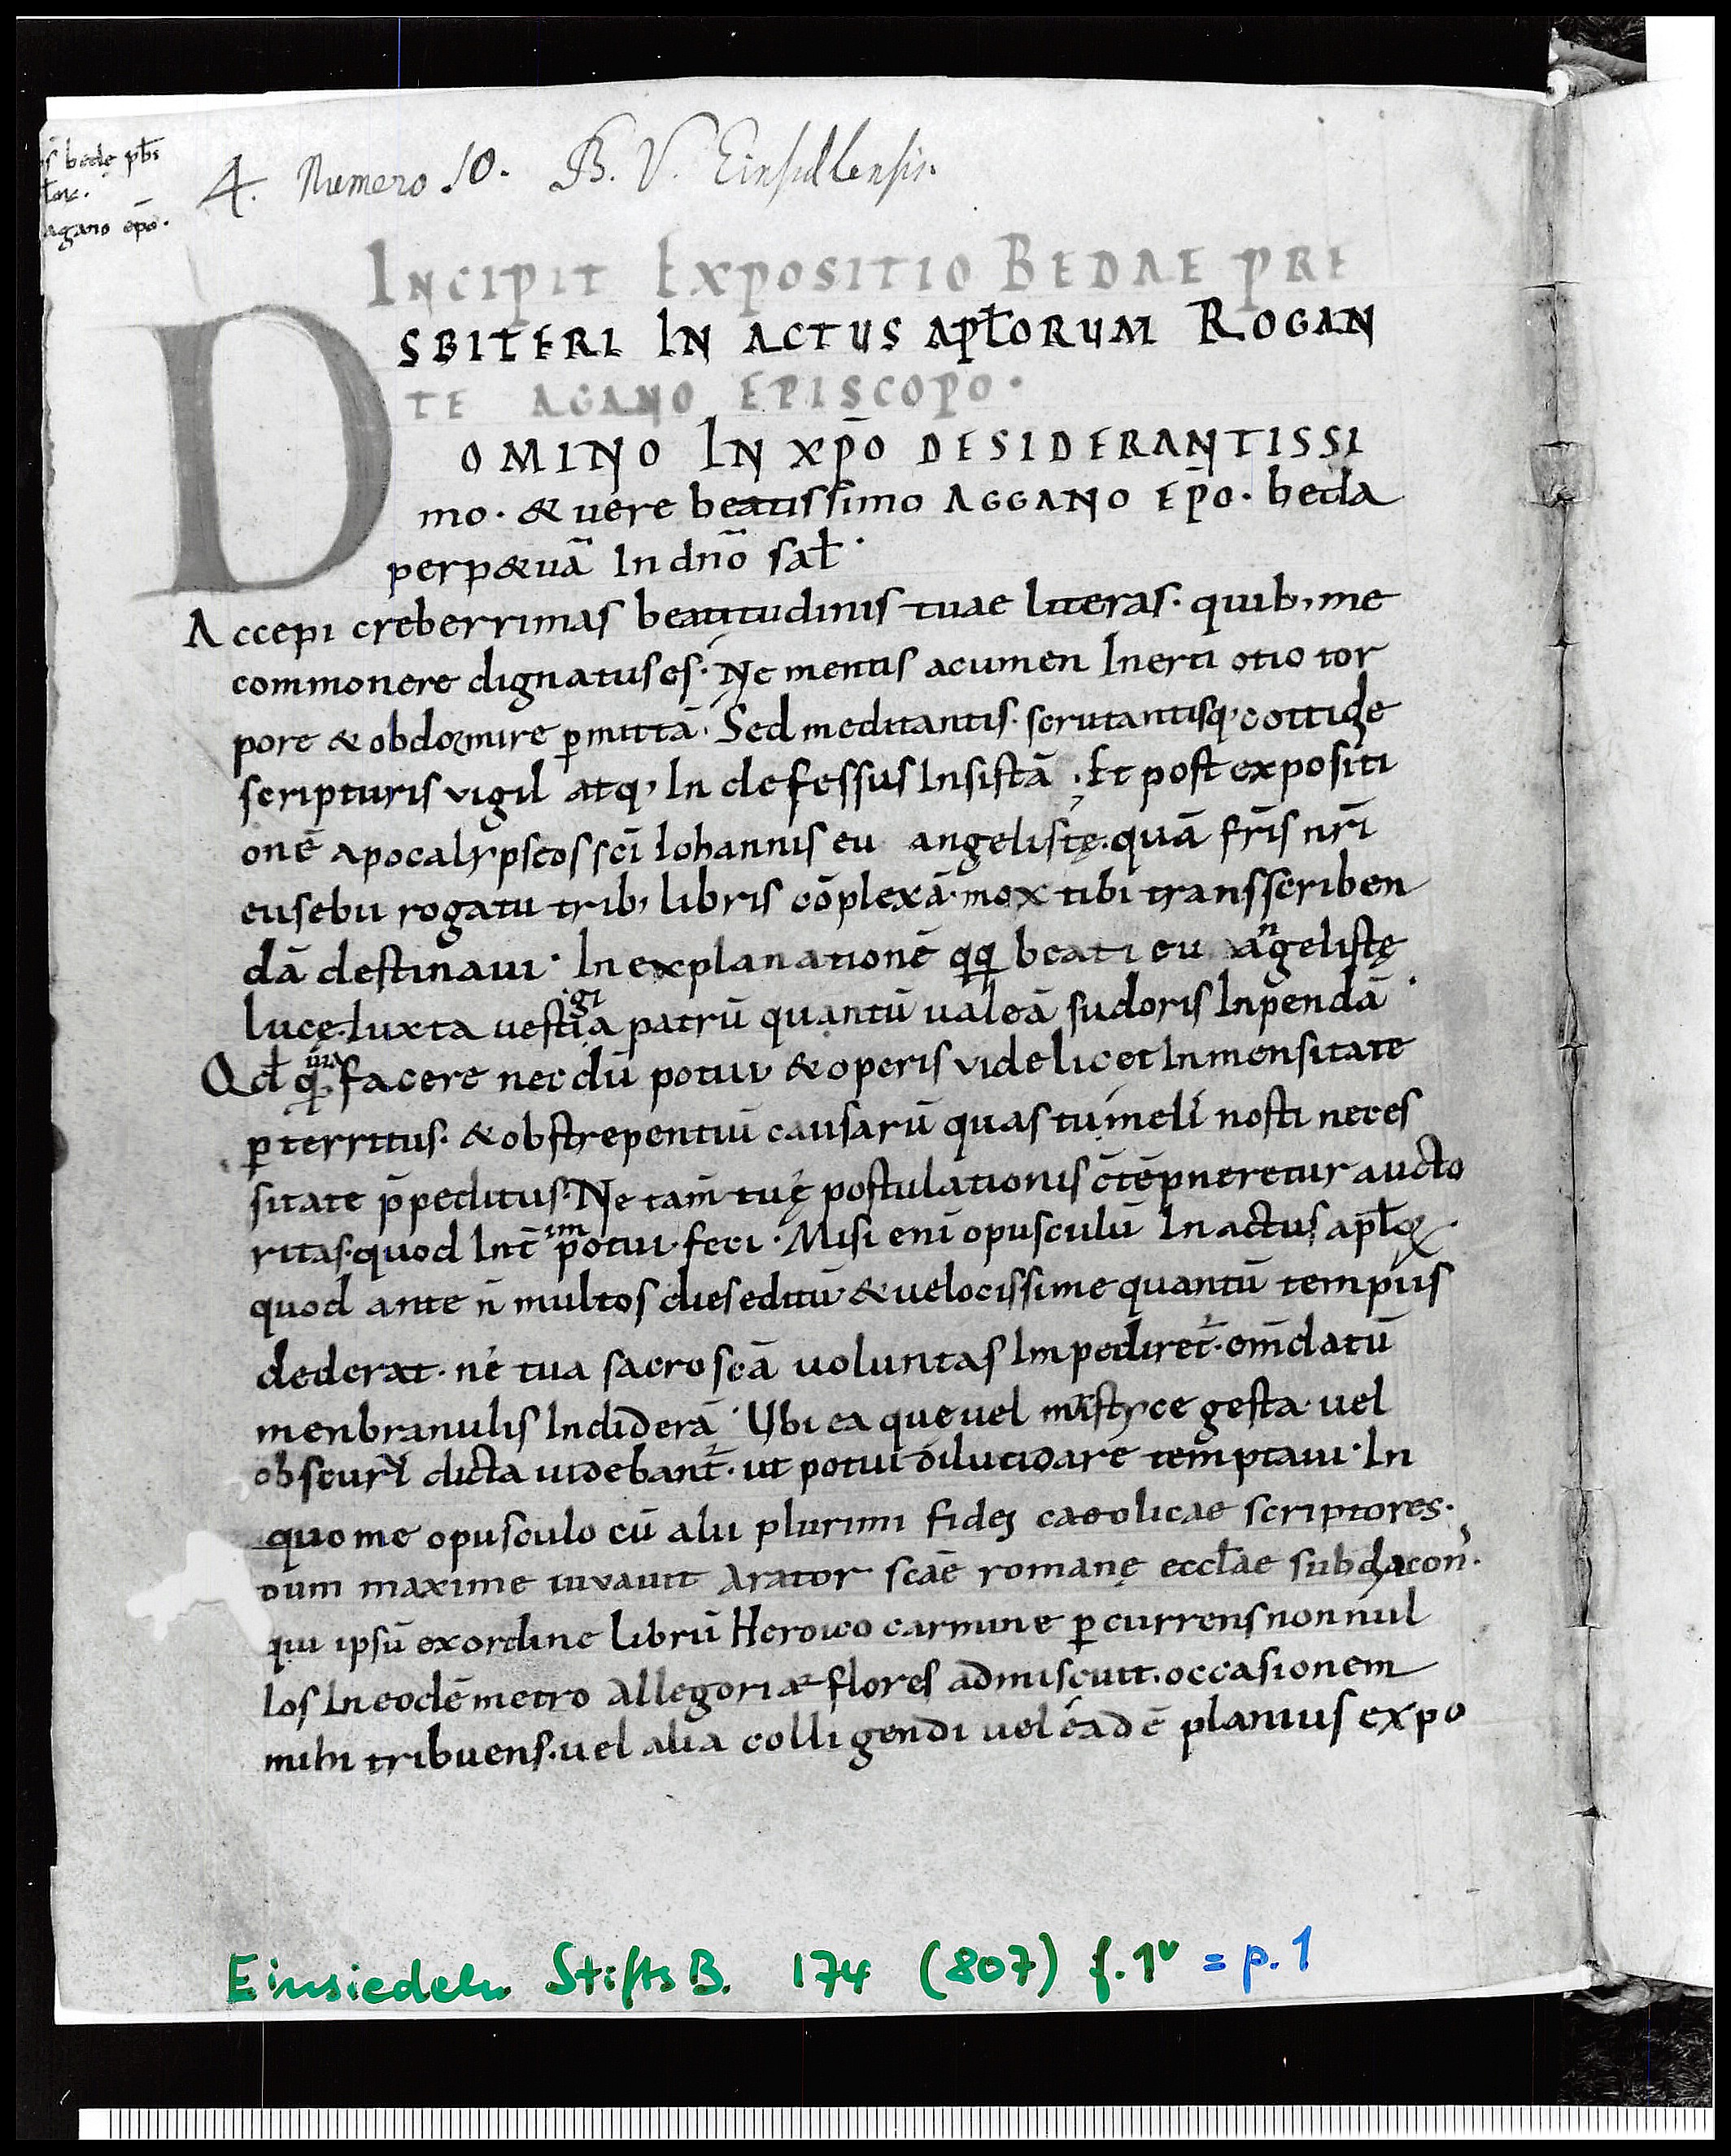 bedę pb̄s
agano ep̄o.
4. Numero 10. B. V. Einsidlensis.
INCIPIT EXPOSITIO BEDAE PRE
SBITERI IN ACTUS APŁORUM ROGAN
TE AGANO EPISCOPO.
DOMINO IN XP̄O DESIDERANTISSI
mo. & uere beatissimo AGGANO EP̄O. beda
perp&uā In dn̄o sał.
Accepi creberrimas beatitudinis tuae literas. quib, me
commonere dignatus es. Ne mentis acumen Inerti otio tor
pore & obdormire ꝑmittā. Sed meditantis. scrutantisq, cottide
scripturis vigil atq, In defessus Insistā. Et post expositi
onē apocalypseos sc̄i Iohannis eu angelistę. quā fr̄is nr̄i
eusebii rogatu trib, libris cōplexā. mox tibi transscriben
dā destinaui. In explanationē qq beati eu angelistę
lucę. Iuxta uestigia patrū quantū ualeā sudoris Inpendā.
Qđ facere necdū potui & operis videlicet Inmensitate
ꝑterritus. & obstrepentiū causarū quas tu meli nosti neces
sitate p̄peditus. Ne tam̄ tuę postulationis c̄tēpneretur aucto
ritas. quod Int̄im potui feci. Misi eni opusculū In actus apłoꝝ.
quod ante n̄ multos dies editū & uelocissime quantū tempus
dederat. ne tua sacro sc̄a uoluntas Impediret̄. em̄datū
menbranulis Indiderā. Ubi ea quę uel mistyce gesta. uel
obscuri dicta uidebant̄. ut potui dilucidare temptaui. In
quo me opusculo cū alii plurimi fidei caeolicae scriptores.
dum maxime iuvauit Arator sc̄ae romanę eccłae subdiacon̄.
qui ipsū ex ordine librū Heroico carmine ꝑcurrens non nul
los In eodē metro Allegoriae flores admiscuit. occasionem
mihi tribuens. uel alia colligendi uel eadē planius expo
Einsiedeln StiftsB. 174 (807) f. 1v = p. 1